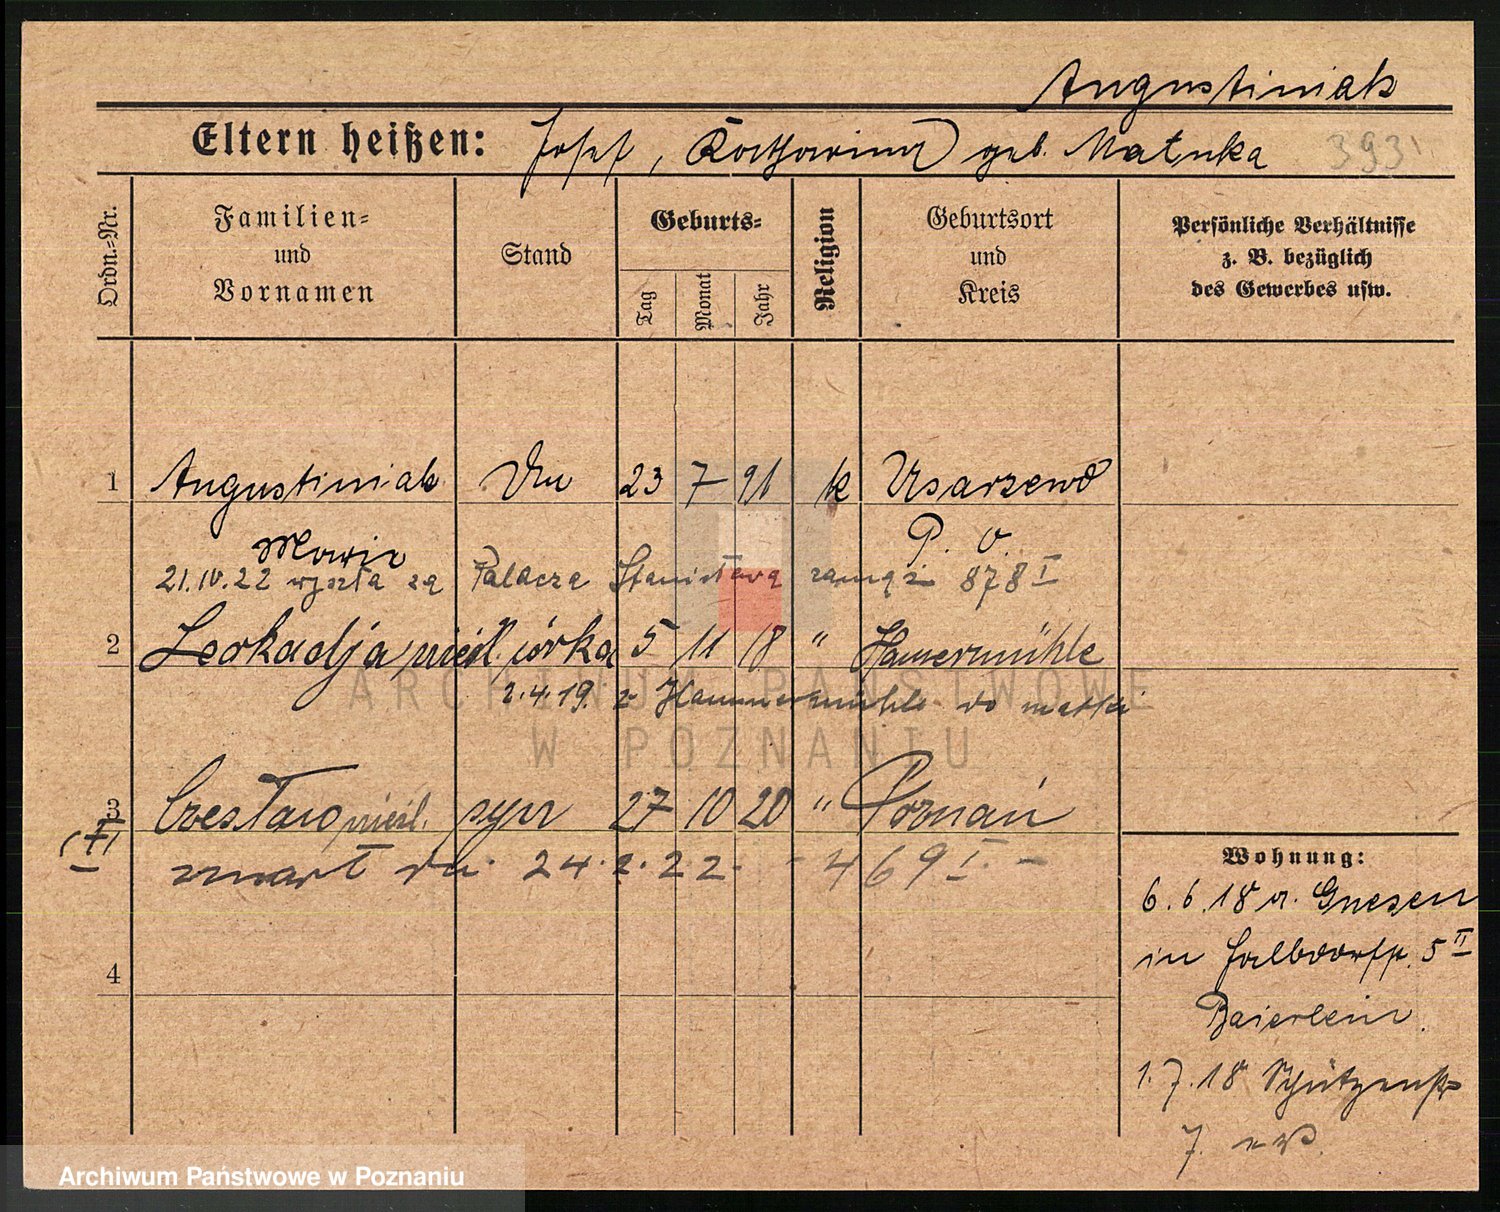 Augustiniak
Eltern heißen: Josef, Katharina geb. Matuka 393
Ordn.=Nr. Familien= und Vornamen Stand Geburts= Tag Monat Jahr Religion Geburtsort und Kreis Persönliche Verhältnisse z. B. bezüglich des Gewerbes usw.
1 Augustiniak 23 7 91 k Usarzewo
Marie P. O.
21.IV.22 wyszła za Palacza Stanisława zamąż 878 I
2 Leokadja nieśl. córka 5 11 18 " Hammermühle
2.4.19. z Hammermühle do matki
3 Czesław nieśl. syn 27 10 20 " Poznań
zmarł dn. 24.2.22. - 469 I. -
4
Wohnung:
6.6.18 v. Gnesen
in 5 II
Baierlein
1.7.18 Schützenstr
7.
ARCHIWUM PAŃSTWOWE
W POZNANIU
Archiwum Państwowe w Poznaniu